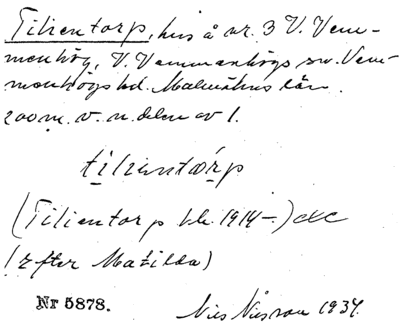 Tilientorp, hus å nr. 3 V. Vem-
menhög, V. Vemmenhögs sn. Vem-
menhögs hd. Malmöhus län.
200 m. v. n. delen av 1.
tilientorp
(Tilientorp bl. 1914–)
(efter Matilda)
Nr 5878.
Nils Nilsson 1934.